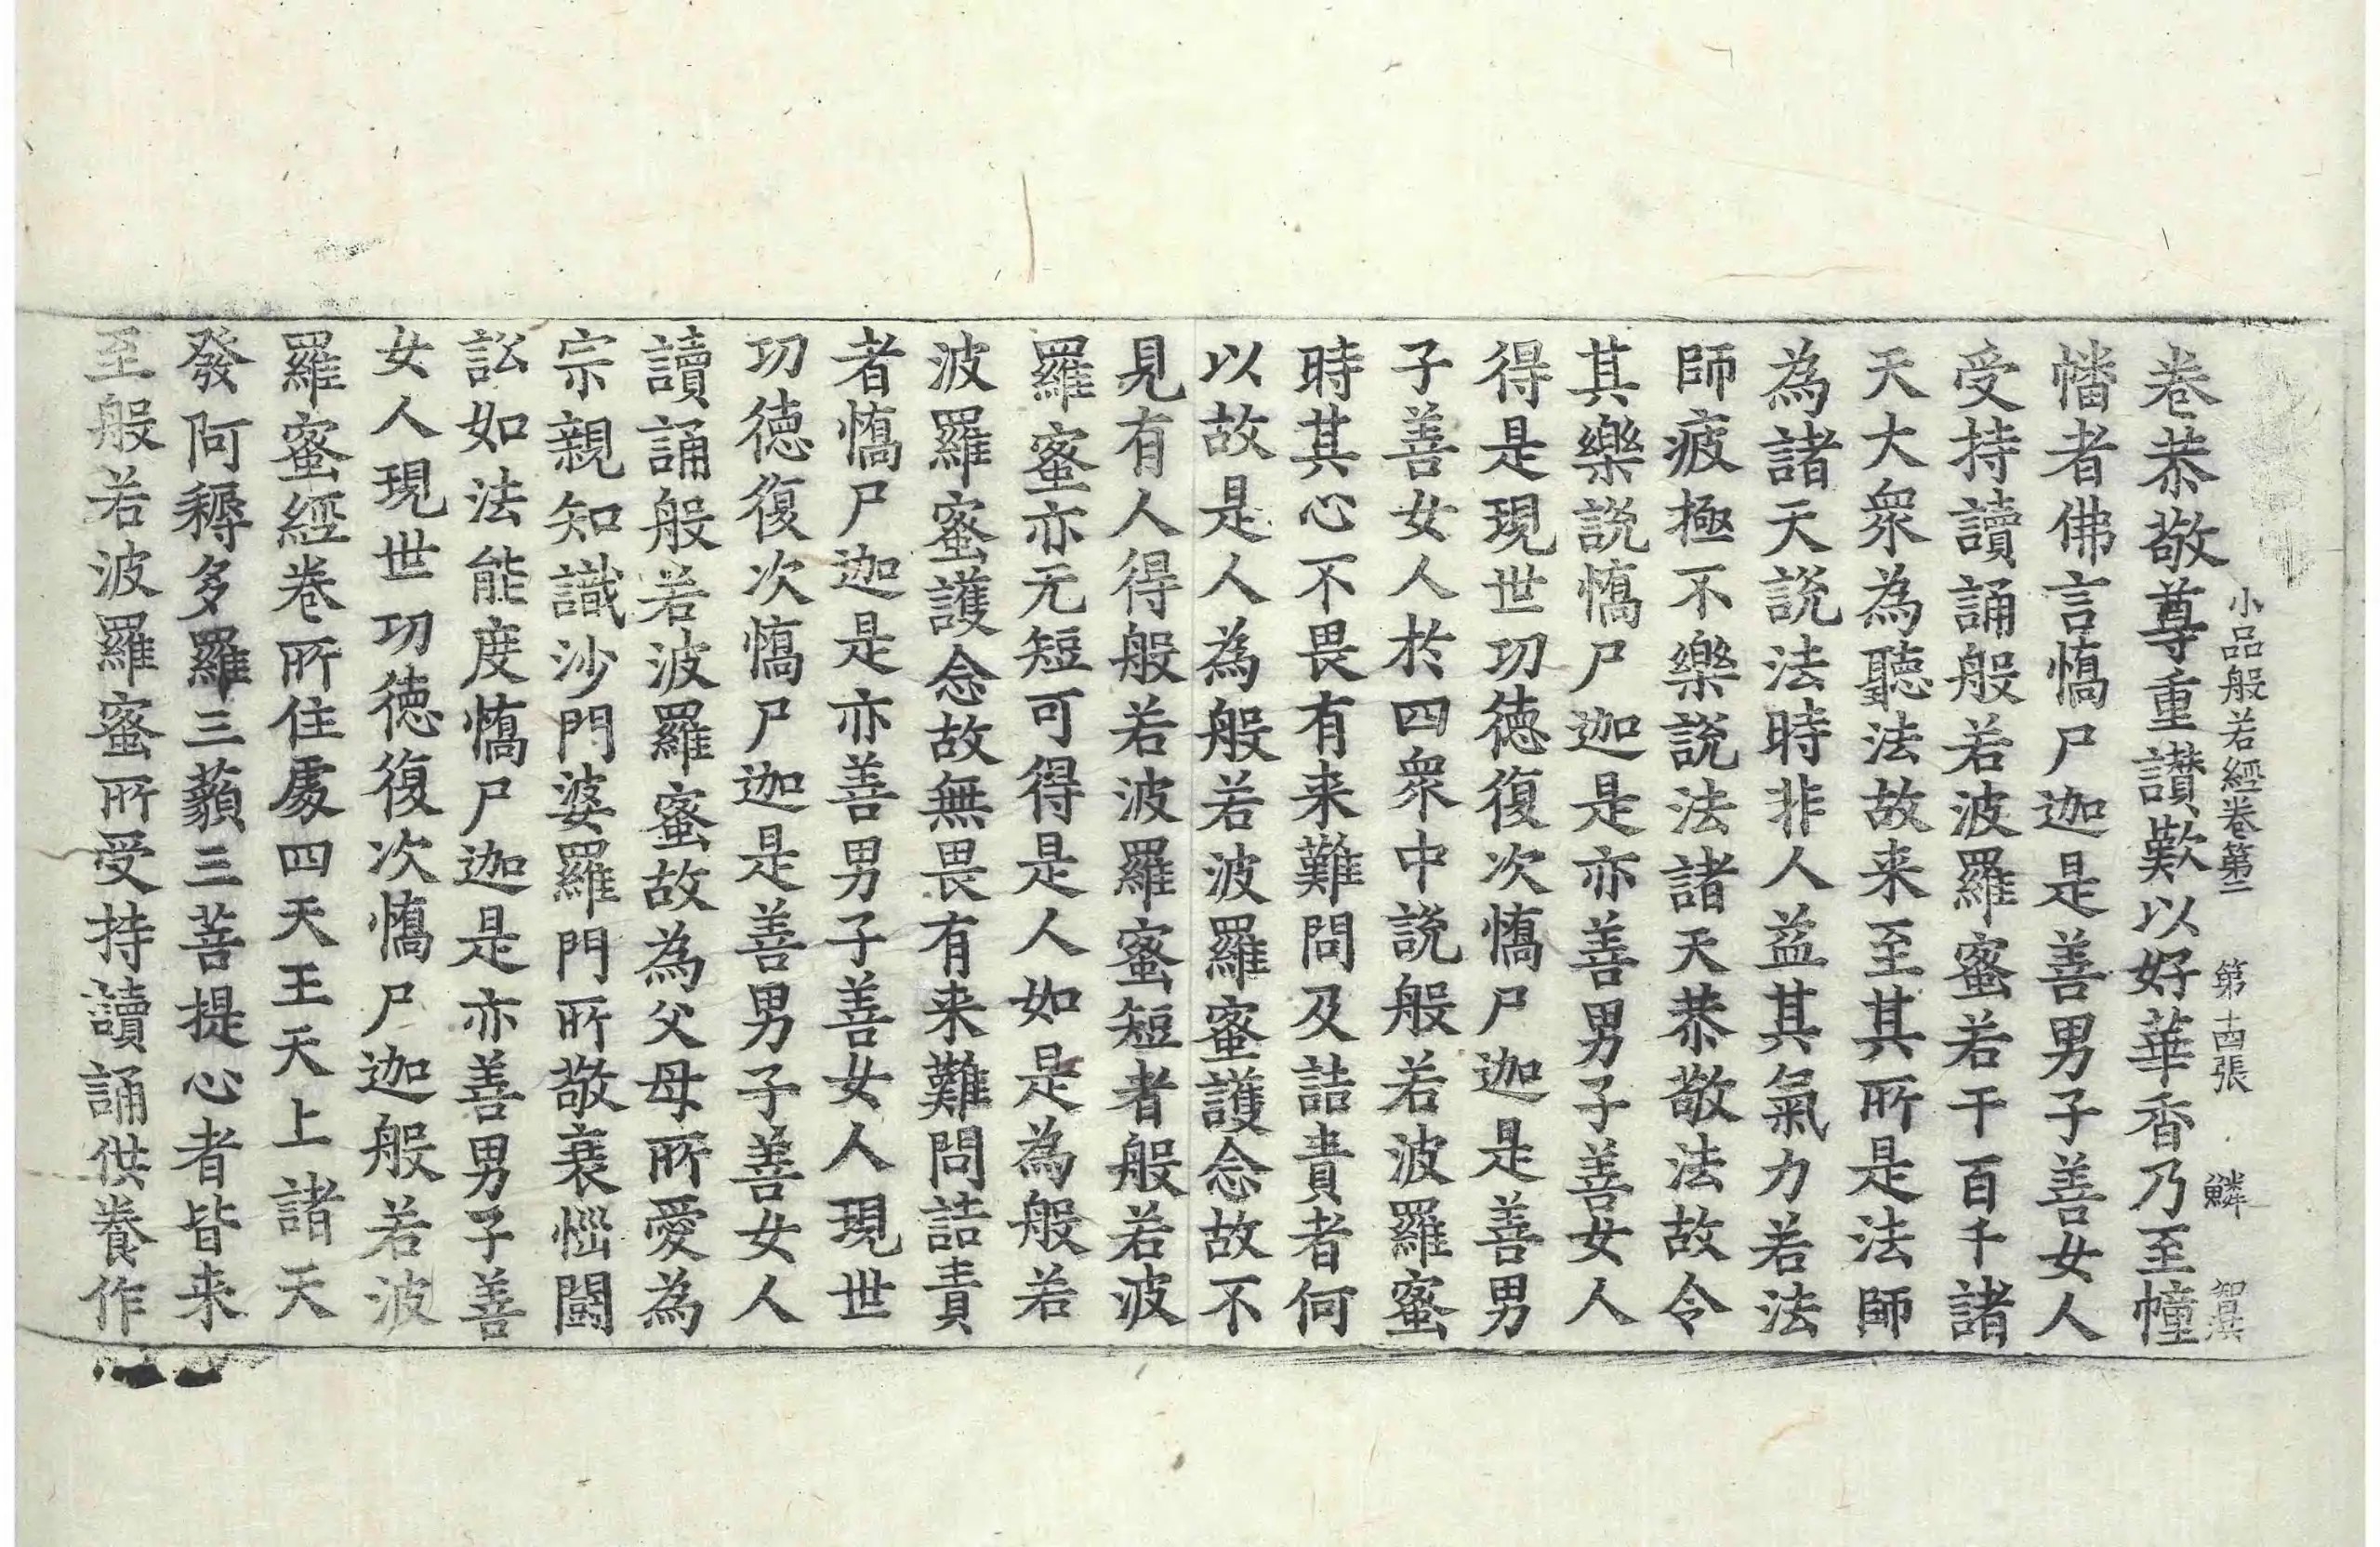 小品般若經卷第二　第十四張　鱗
卷恭敬尊重讃歎以好華香乃至幢
幡者佛言憍尸迦是善男子善女人
受持讀誦般若波羅蜜若干百千諸
天大衆為聽法故来至其所是法師
為諸天說法時非人益其氣力若法
師疲極不樂說法諸天恭敬法故令
其樂說憍尸迦是亦善男子善女人
得是現世功徳復次憍尸迦是善男
子善女人於四衆中說般若波羅蜜
時其心不畏有来難問及詰責者何
以故是人為般若波羅蜜護念故不
見有人得般若波羅蜜短者般若波
羅蜜亦无短可得是人如是為般若
波羅蜜護念故無畏有来難問詰責
者憍尸迦是亦善男子善女人現世
功徳復次憍尸迦是善男子善女人
讀誦般若波羅蜜故為父母所愛為
宗親知識沙門婆羅門所敬衰惱鬪
訟如法能度憍尸迦是亦善男子善
女人現世功徳復次憍尸迦般若波
羅蜜經卷所住處四天王天上諸天
發阿耨多羅三藐三菩提心者皆来
至般若波羅蜜所受持讀誦供養作